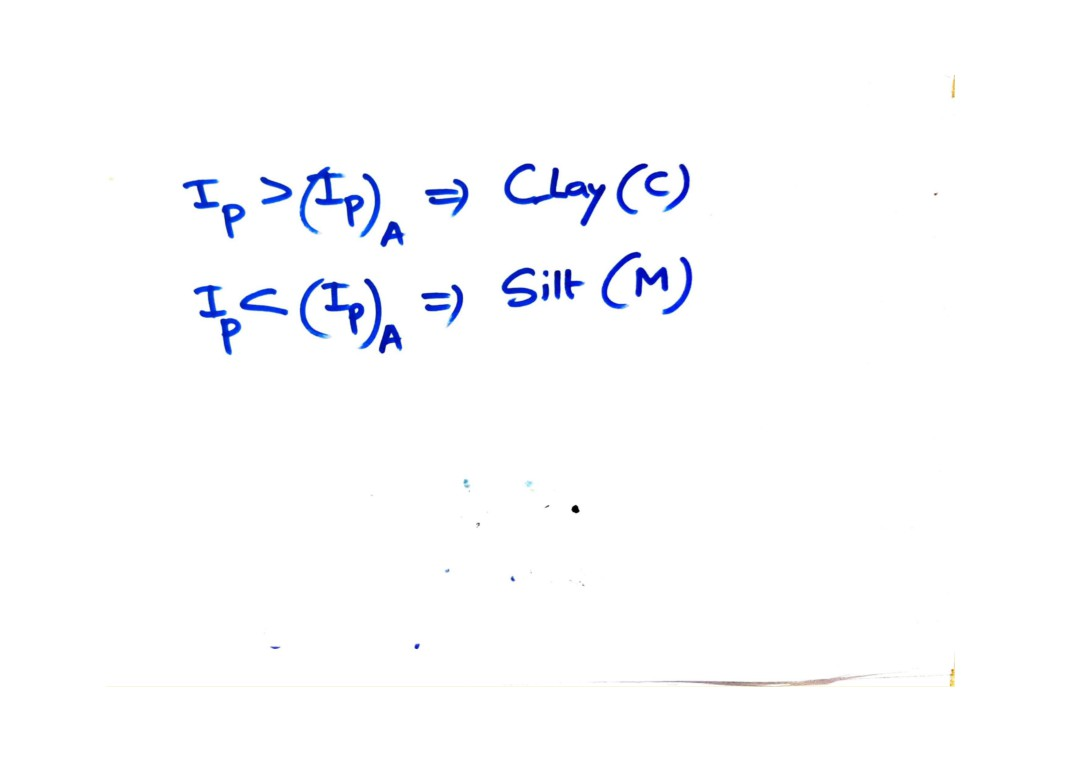 Ip > (Ip)A ⇒ Clay (C)
Ip < (Ip)A ⇒ Silt (M)